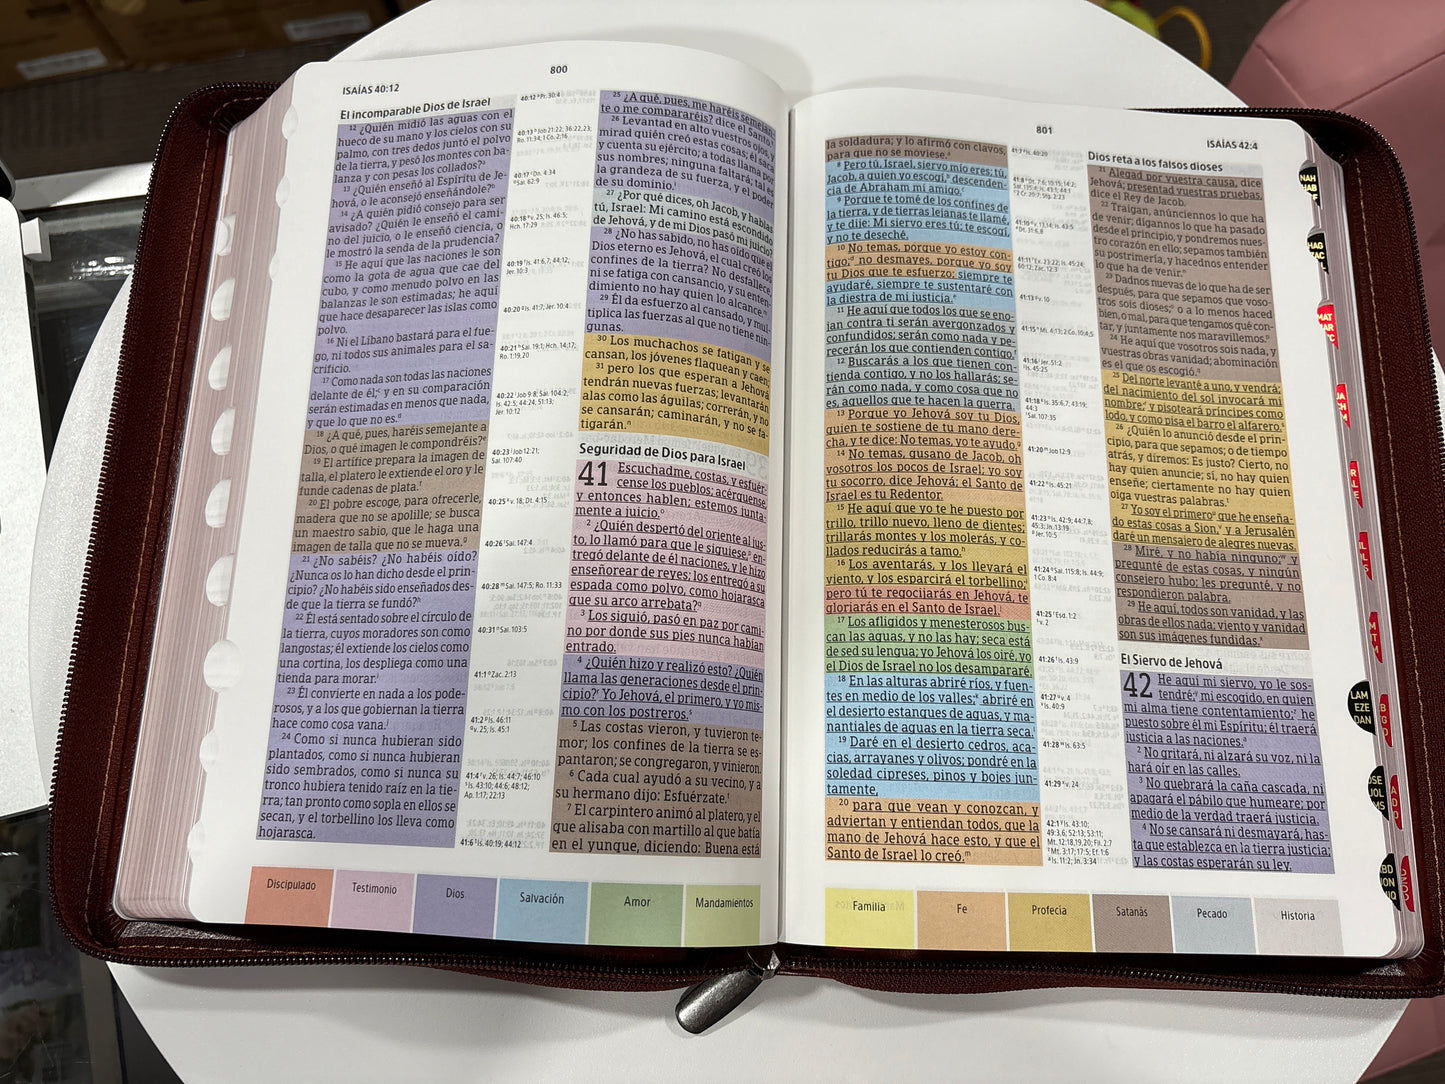 ISAÍAS 40:12
800
El incomparable Dios de Israel
12 ¿Quién midió las aguas con el
hueco de su mano y los cielos con su
palmo, con tres dedos juntó el polvo
de la tierra, y pesó los montes con ba-
lanza y con pesas los collados?
13 ¿Quién enseñó al Espíritu de Je-
hová, o le aconsejó enseñándole?
14 ¿A quién pidió consejo para ser
avisado? ¿Quién le enseñó el cami-
no del juicio, o le enseñó ciencia, o
le mostró la senda de la prudencia?
15 He aquí que las naciones le son
como la gota de agua que cae del
cubo, y como menudo polvo en las
balanzas le son estimadas; he aquí
que hace desaparecer las islas como
polvo.
16 Ni el Líbano bastará para el fue-
go, ni todos sus animales para el sa-
crificio.
17 Como nada son todas las naciones
delante de él; y en su comparación
serán estimadas en menos que nada,
y que lo que no es.
18 ¿A qué, pues, haréis semejante a
Dios, o qué imagen le compondréis?
19 El artífice prepara la imagen de
talla, el platero le extiende el oro y le
funde cadenas de plata.
20 El pobre escoge, para ofrecerle,
madera que no se apolille; se busca
un maestro sabio, que le haga una
imagen de talla que no se mueva.
21 ¿No sabéis? ¿No habéis oído?
¿Nunca os lo han dicho desde el prin-
cipio? ¿No habéis sido enseñados des-
de que la tierra se fundó?
22 Él está sentado sobre el círculo de
la tierra, cuyos moradores son como
langostas; él extiende los cielos como
una cortina, los despliega como una
tienda para morar.
23 Él convierte en nada a los pode-
rosos, y a los que gobiernan la tierra
hace como cosa vana.
24 Como si nunca hubieran sido
plantados, como si nunca hubieran
sido sembrados, como si nunca su
tronco hubiera tenido raíz en la tie-
rra; tan pronto como sopla en ellos se
secan, y el torbellino los lleva como
hojarasca.
40:12 Pr. 30:4
40:13 Job 21:22; 36:22,23;
Ro. 11:34; 1 Co. 2:16
40:17 Dn. 4:34
Sal. 62:9
40:18 v. 25; Is. 46:5;
Hch. 17:29
40:19 Is. 41:6,7; 44:12;
Jer. 10:3
40:20 Is. 41:7; Jer. 10:4
40:21 Sal. 19:1; Hch. 14:17;
Ro. 1:19,20
40:22 Job 9:8; Sal. 104:2;
Is. 42:5; 44:24; 51:13;
Jer. 10:12
40:23 Job 12:21;
Sal. 107:40
40:25 v. 18; Dt. 4:15
40:26 Sal. 147:4
40:28 Sal. 147:5; Ro. 11:33
40:31 Sal. 103:5
41:1 Zac. 2:13
41:2 Is. 46:11
v. 25; Is. 45:1
41:4 v. 26; Is. 44:7; 46:10
Is. 43:10; 44:6; 48:12;
Ap. 1:17; 22:13
41:6 Is. 40:19; 44:12
25 ¿A qué, pues, me haréis semejan-
te o me compararéis? dice el Santo.
26 Levantad en alto vuestros ojos, y
mirad quién creó estas cosas; él saca
y cuenta su ejército; a todas llama por
sus nombres; ninguna faltará; tal es
la grandeza de su fuerza, y el poder
de su dominio.
27 ¿Por qué dices, oh Jacob, y hablas
tú, Israel: Mi camino está escondido
de Jehová, y de mi Dios pasó mi juicio?
28 ¿No has sabido, no has oído que el
Dios eterno es Jehová, el cual creó los
confines de la tierra? No desfallece,
ni se fatiga con cansancio, y su enten-
dimiento no hay quien lo alcance.
29 Él da esfuerzo al cansado, y mul-
tiplica las fuerzas al que no tiene nin-
gunas.
30 Los muchachos se fatigan y se
cansan, los jóvenes flaquean y caen;
31 pero los que esperan a Jehová
tendrán nuevas fuerzas; levantarán
alas como las águilas; correrán, y no
se cansarán; caminarán, y no se fa-
tigarán.
Seguridad de Dios para Israel
41 Escuchadme, costas, y esfuér-
cense los pueblos; acérquense,
y entonces hablen; estemos junta-
mente a juicio.
2 ¿Quién despertó del oriente al jus-
to, lo llamó para que le siguiese, en-
tregó delante de él naciones, y le hizo
enseñorear de reyes; los entregó a su
espada como polvo, como hojarasca
que su arco arrebata?
3 Los siguió, pasó en paz por cami-
no por donde sus pies nunca habían
entrado.
4 ¿Quién hizo y realizó esto? ¿Quién
llama las generaciones desde el prin-
cipio? Yo Jehová, el primero, y yo mis-
mo con los postreros.
5 Las costas vieron, y tuvieron te-
mor; los confines de la tierra se es-
pantaron; se congregaron, y vinieron.
6 Cada cual ayudó a su vecino, y a
su hermano dijo: Esfuérzate.
7 El carpintero animó al platero, y el
que alisaba con martillo al que batía
en el yunque, diciendo: Buena está
Discipulado
Testimonio
Dios
Salvación
Amor
Mandamientos
801
ISAÍAS 42:4
la soldadura; y lo afirmó con clavos,
para que no se moviese.
8 Pero tú, Israel, siervo mío eres; tú,
Jacob, a quien yo escogí, descenden-
cia de Abraham mi amigo.
9 Porque te tomé de los confines de
la tierra, y de tierras lejanas te llamé,
y te dije: Mi siervo eres tú; te escogí,
y no te deseché.
10 No temas, porque yo estoy con-
tigo; no desmayes, porque yo soy
tu Dios que te esfuerzo; siempre te
ayudaré, siempre te sustentaré con
la diestra de mi justicia.
11 He aquí que todos los que se eno-
jan contra ti serán avergonzados y
confundidos; serán como nada y pe-
recerán los que contienden contigo.
12 Buscarás a los que tienen con-
tienda contigo, y no los hallarás; se-
rán como nada, y como cosa que no
es, aquellos que te hacen la guerra.
13 Porque yo Jehová soy tu Dios,
quien te sostiene de tu mano dere-
cha, y te dice: No temas, yo te ayudo.
14 No temas, gusano de Jacob, oh
vosotros los pocos de Israel; yo soy
tu socorro, dice Jehová; el Santo de
Israel es tu Redentor.
15 He aquí que yo te he puesto por
trillo, trillo nuevo, lleno de dientes;
trillarás montes y los molerás, y co-
llados reducirás a tamo.
16 Los aventarás, y los llevará el
viento, y los esparcirá el torbellino;
pero tú te regocijarás en Jehová, te
gloriarás en el Santo de Israel.
17 Los afligidos y menesterosos bus-
can las aguas, y no las hay; seca está
de sed su lengua; yo Jehová los oiré, yo
el Dios de Israel no los desampararé.
18 En las alturas abriré ríos, y fuen-
tes en medio de los valles; abriré en
el desierto estanques de aguas, y ma-
nantiales de aguas en la tierra seca.
19 Daré en el desierto cedros, aca-
cias, arrayanes y olivos; pondré en la
soledad cipreses, pinos y bojes jun-
tamente,
20 para que vean y conozcan, y
adviertan y entiendan todos, que la
mano de Jehová hace esto, y que el
Santo de Israel lo creó.
41:7 Is. 40:20
41:8 Dt. 7:6; 10:15; 14:2;
Sal. 135:4; Is. 43:1; 44:1
2 Cr. 20:7; Stg. 2:23
41:10 v. 13,14; Is. 43:5
Dt. 31:6,8
41:11 Éx. 23:22; Is. 45:24;
60:12; Zac. 12:3
41:13 v. 10
41:15 Mi. 4:13; 2 Co. 10:4,5
41:16 Jer. 51:2
Is. 45:25
41:18 Is. 35:6,7; 43:19;
44:3
Sal. 107:35
41:20 Job 12:9
41:22 Is. 45:21
41:23 Is. 42:9; 44:7,8;
45:3; Jn. 13:19
Jer. 10:5
41:24 Sal. 115:8; Is. 44:9;
1 Co. 8:4
41:25 Esd. 1:2
v. 2
41:26 Is. 43:9
41:27 v. 4
Is. 40:9
41:28 Is. 63:5
41:29 v. 24
42:1 Is. 43:10;
49:3,6; 52:13; 53:11;
Mt. 12:18,19,20; Fil. 2:7
Mt. 3:17; 17:5; Ef. 1:6
Is. 11:2; Jn. 3:34
Dios reta a los falsos dioses
21 Alegad por vuestra causa, dice
Jehová; presentad vuestras pruebas,
dice el Rey de Jacob.
22 Traigan, anúnciennos lo que ha
de venir; dígannos lo que ha pasado
desde el principio, y pondremos nues-
tro corazón en ello; sepamos también
su postrimería, y hacednos entender
lo que ha de venir.
23 Dadnos nuevas de lo que ha de ser
después, para que sepamos que voso-
tros sois dioses; o a lo menos haced
bien, o mal, para que tengamos qué con-
tar, y juntamente nos maravillemos.
24 He aquí que vosotros sois nada, y
vuestras obras vanidad; abominación
es el que os escogió.
25 Del norte levanté a uno, y vendrá;
del nacimiento del sol invocará mi
nombre; y pisoteará príncipes como
lodo, y como pisa el barro el alfarero.
26 ¿Quién lo anunció desde el prin-
cipio, para que sepamos; o de tiempo
atrás, y diremos: Es justo? Cierto, no
hay quien anuncie; sí, no hay quien
enseñe; ciertamente no hay quien
oiga vuestras palabras.
27 Yo soy el primero que he enseña-
do estas cosas a Sion, y a Jerusalén
daré un mensajero de alegres nuevas.
28 Miré, y no había ninguno; y
pregunté de estas cosas, y ningún
consejero hubo; les pregunté, y no
respondieron palabra.
29 He aquí, todos son vanidad, y las
obras de ellos nada; viento y vanidad
son sus imágenes fundidas.
El Siervo de Jehová
42 He aquí mi siervo, yo le sos-
tendré; mi escogido, en quien
mi alma tiene contentamiento; he
puesto sobre él mi Espíritu; él traerá
justicia a las naciones.
2 No gritará, ni alzará su voz, ni la
hará oír en las calles.
3 No quebrará la caña cascada, ni
apagará el pábilo que humeare; por
medio de la verdad traerá justicia.
4 No se cansará ni desmayará, has-
ta que establezca en la tierra justicia;
y las costas esperarán su ley.
Familia
Fe
Profecía
Satanás
Pecado
Historia
NAH
HAB
HAG
MAT
LAM
EZE
DAN